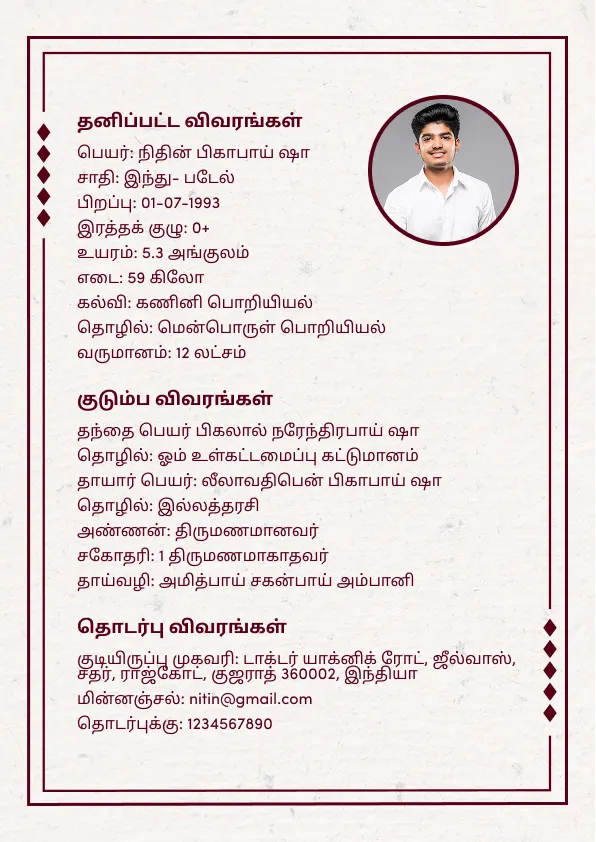 தனிப்பட்ட விவரங்கள்
பெயர்: நிதின் பிகாபாய் ஷா
சாதி: இந்து- படேல்
பிறப்பு: 01-07-1993
இரத்தக் குழு: 0+
உயரம்: 5.3 அங்குலம்
எடை: 59 கிலோ
கல்வி: கணினி பொறியியல்
தொழில்: மென்பொருள் பொறியியல்
வருமானம்: 12 லட்சம்
குடும்ப விவரங்கள்
தந்தை பெயர் பிகலால் நரேந்திரபாய் ஷா
தொழில்: ஓம் உள்கட்டமைப்பு கட்டுமானம்
தாயார் பெயர்: லீலாவதிபென் பிகாபாய் ஷா
தொழில்: இல்லத்தரசி
அண்ணன்: திருமணமானவர்
சகோதரி: 1 திருமணமாகாதவர்
தாய்வழி: அமித்பாய் சகன்பாய் அம்பானி
தொடர்பு விவரங்கள்
குடியிருப்பு முகவரி: டாக்டர் யாக்னிக் ரோட், ஜீல்வாஸ்,
சதர், ராஜ்கோட், குஜராத் 360002, இந்தியா
மின்னஞ்சல்: nitin@gmail.com
தொடர்புக்கு: 1234567890